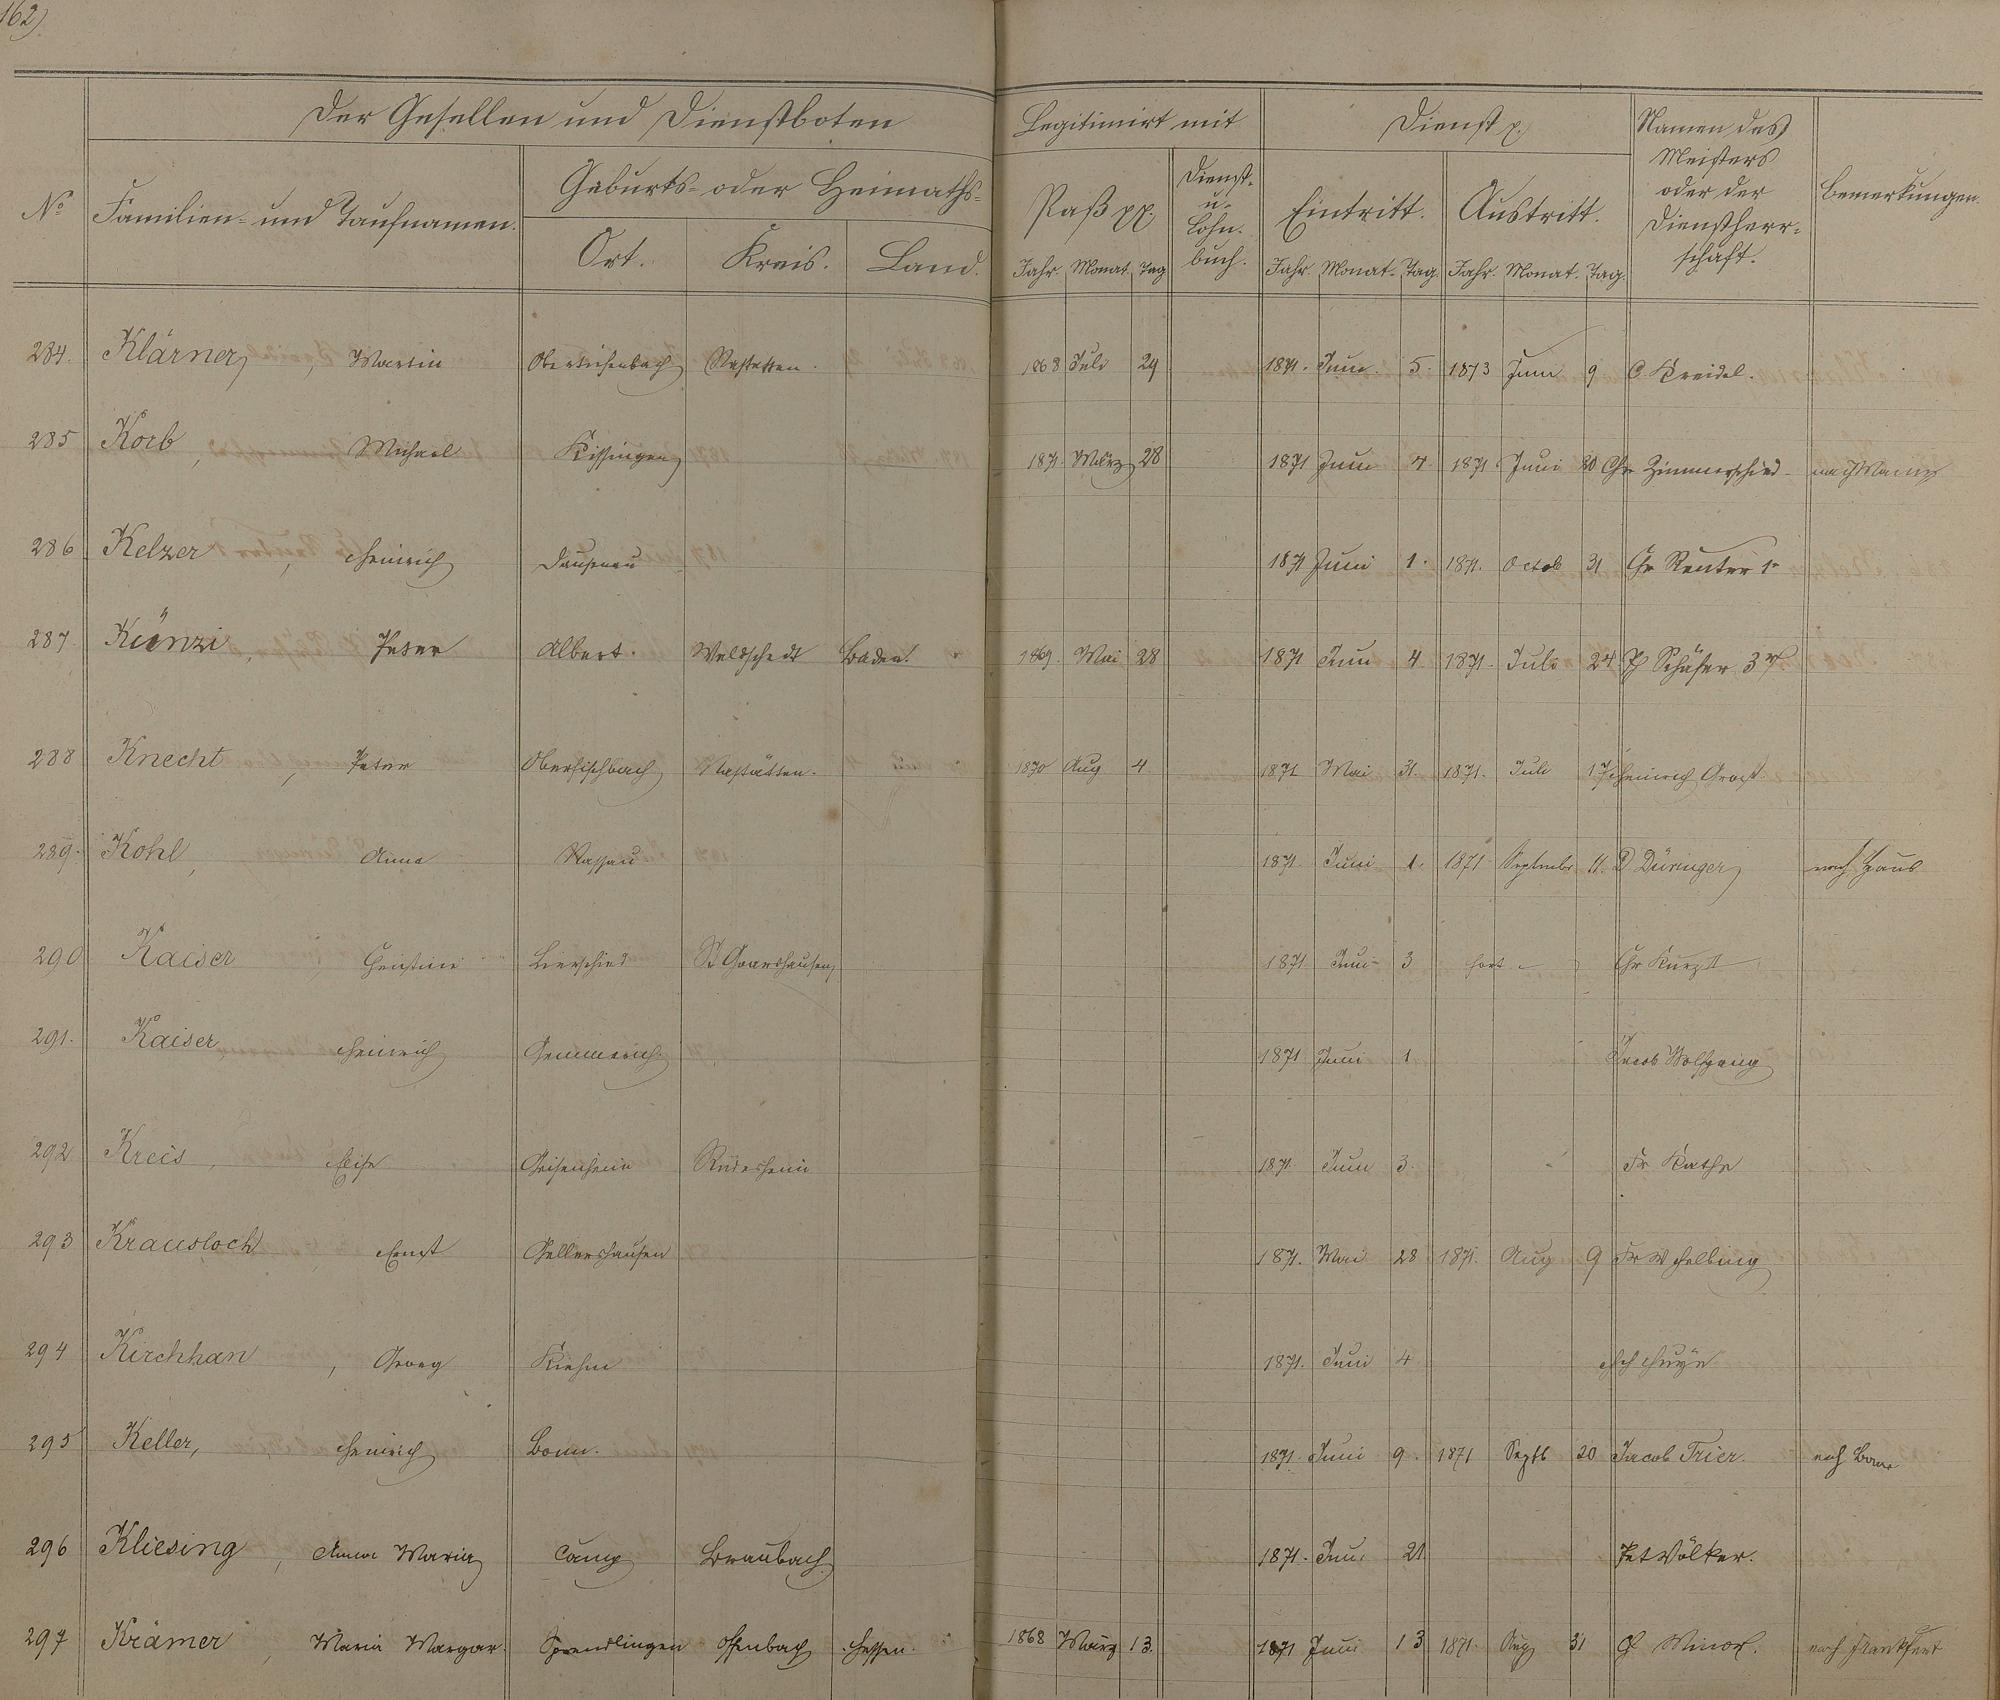 162)
Der Gesellen und Dienstboten
Legitimirt mit
Dienst p.
Namen des Meisters oder der Dienstherrschaft.
Bemerkungen.
No
Familien- und Taufnamen.
Geburts- oder Heimaths-
Ort. Kreis. Land.
Paß pp.
Dienst- u. Lohn-buch.
Eintritt. Austritt.
Jahr. Monat Tag Jahr. Monat. Tag. Jahr. Monat. Tag.
284. Klärner, Martin Nastetten. 1868 Juli 29 1871. Juni. 5. 1873 Juni 9 C. Kreidel.
285 Korb, Michael Kissingen 1871. März 28 1871 Juni 7. 1871. Juni 20 Chr Zimmerschied
286 Kelzer, Heinrich Dausenau 1871 Juni 1. 1871. Octob 31 Chr Reuter
287 Künzi, Peter Albert. Baden. 1869. Mai 28 1871 Juni 4 1871. Juli 24 Schäfer 3
288 Knecht, Peter Oberfischbach Nastätten. 1870 Aug 4 1871 Mai 31. 1871. Juli 17 Heinrich
289. Kohl, Anna Nassau 1871. Juni 1. 1871 Septembr 11. D. Düringer nach Haus
290 Kaiser Christine Lierschied St Goarshausen 1871 Juni 3 fort Chr Kurz II
291. Kaiser Heinrich Gemmerich. 1871 Juni 1 Jacob Wolfgang
292 Kreis, Elise Geisenheim Rüdesheim 1871. Juni 3. Fr. Kathe
293 Krausloch, Ernst Gellershausen 1871. Mai 28 1871. Aug 9 Fr W Helbing
294 Kirchhan, Georg 1871. Juni 4
295 Keller, Heinrich Bonn. 1871. Juni 9. 1871 Septb 20 Jacob Trier. nach Bonn
296 Kliesing, Anna Maria Camp Braubach. 1871. Juni 21 Pet Völker.
297 Krämer, Maria Margar. Sprendlingen Offenbach Hessen. 1868 März 13. 1871 Juni 13 1871. Aug 31 Minor. nach Frankfurt